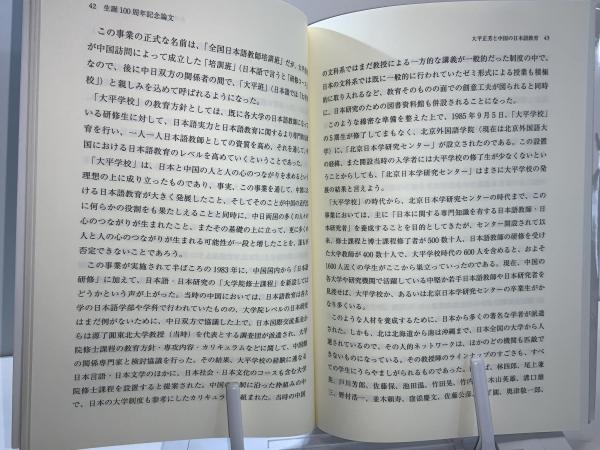 42 生誕100周年記念論文
この事業の正式な名前は、「全国日本語教師培訓班」だが、大平
が中国訪問によって成立した「培訓班」（日本語で言うと「研修コース」）
なので、後に中日双方の関係者の間で、「大平班」（日本語では「大平学
校」）と親しみを込めて呼ばれるようになった。
「大平学校」の教育方針としては、既に各大学の日本語教師になって
いる研修生に対して、日本語実力と日本語教育に関するより専門的な教
育を行い、一人一人日本語教師としての資質を高め、それを通して、中
国における日本語教育のレベルを高めていくということであった。
「大平学校」は、日本と中国の人と人の心のつながりを求めるという
理想の上に成り立ったものであり、事実、この事業を通して、中国にお
ける日本語教育が大きく発展したこと、そしてそのことが中国の近代化
に何らかの役割をも果たしえることと同時に、中日両国の多くの人々
の心のつながりが生まれたこと、またその基礎の上に立って、更に多くの
人と人の心のつながりが生まれる可能性が一段と増したことを、誰も
否定できないことであろう。
この事業が実施されて半ばころの1983年に、中国国内から「日本語
研修」に加えて、日本語・日本研究の「大学院修士課程」を新設しては
どうかという声が上がった。当時の中国においては、日本語教育は各大
学の日本語学部や学科で行われていたものの、大学院レベルの日本研究
はまだ例がないために、中日双方で協議した上で、日本国際交流基金か
らは源了圓東北大学教授（当時）を代表とする調査団が派遣され、大学
院修士課程の教育方針・専攻内容・カリキュラムなどに関して、中国側
の関係専門家と検討協議を行った。その結果、大平学校の経験に連なる
日本言語・日本文学のほかに、日本社会・日本文化のコースも含む大学
院修士課程を設置すると提案された。中国の 制に沿った枠組みの中
で、日本の大学制度も参考にしたカリキュラムが組まれた。当時の中国
大平正芳と中国の日本語教育 43
の文科系ではまだ教授による一方的な講義が一般的だった制度の中で、
日本の文科系では既に一般的に行われていたゼミ形式による授業も積極
的に取り入れるなど、教育そのものの面での創意工夫が図られると同時
に、日本研究のための図書資料館も併設されることになった。
このような綿密な準備を整えた上で、1985年9月5日、「大平学校」
の5期生が修了してまもなく、北京外国語学院（現在は北京外国語大
学）に、「北京日本学研究センター」が設立されたのである。この設置
の経緯、また開設当時の入学者には大平学校の修了生が少なくないとい
うことからしても、「北京日本学研究センター」はまさに大平学校の発
展の結果と言えよう。
「大平学校」の時代から、北京日本学研究センターの時代まで、この
事業においては、主に「日本に関する専門知識を有する日本語教師・日
本研究者」を養成することを目的としてきたが、センター開設されて以
来、修士課程と博士課程修了者が500数十人、日本語教師の研修を受け
た大学教師が400数十人で、大平学校時代の600人を含めると、およそ
1600人近くの学生がここから巣立っていったのである。現在、中国の
各大学や研究機関で活躍している中堅か若手日本語教師や日本研究者を
見渡せば、大平学校か、あるいは北京日本学研究センターの卒業生がか
なり多くいる。
このような人材を養成するために、日本から多くの著名な学者が派遣
された。しかも、北は北海道から南は沖縄まで、日本全国の大学から人
選されているので、その人的ネットワークは、ほかのどの機関も匹敵で
きないものになっている。その教授陣のラインナップのすごさも、すべ
ての学生にうらやましがられるものであった。 ば、林四郎、尾上兼
英、戸川芳郎、佐藤保、池田温、竹田晃、竹内 木山英雄、溝口雄
三、野村浩一、並木頼寿、窪添慶文、佐藤公彦、 了圓、奥津敬一郎、